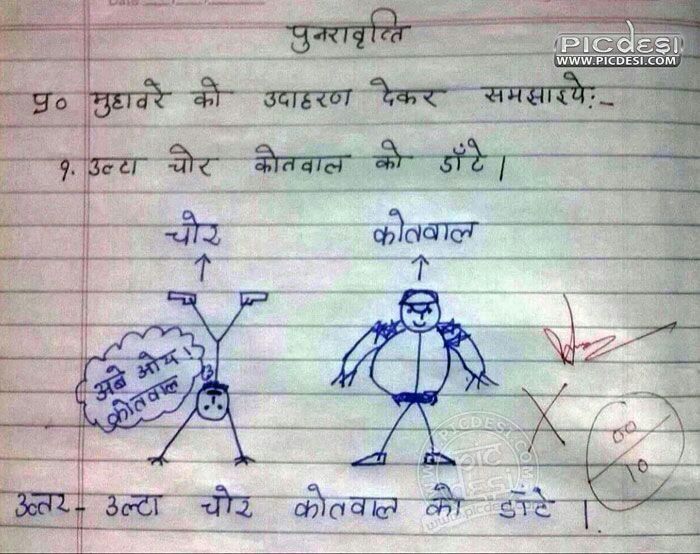 पुनरावृत्ति
PICDESI
WWW.PICDESI.COM
प्र० मुहावरे को उदाहरण देकर समझाइये:-
१. उल्टा चोर कोतवाल को डाँटे |
चोर
कोतवाल
अबे ओय !
कोतवाल
00
10
उत्तर - उल्टा चोर कोतवाल को डाँटे |